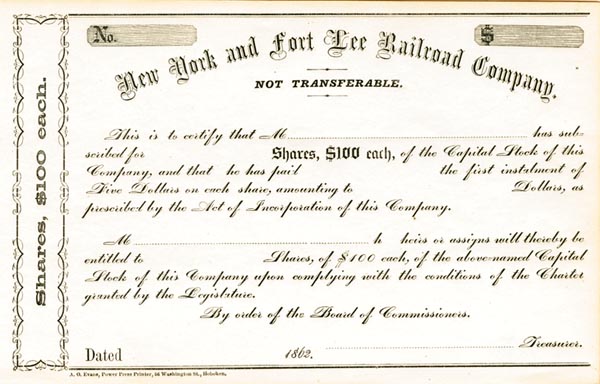 No.
$
New York and Fort Lee Railroad Company.
NOT TRANSFERABLE.
Shares, $100 each.
This is to certify that M has sub-
scribed for Shares, $100 each, of the Capital Stock of this
Company, and that he has paid the first instalment of
Five Dollars on each share, amounting to Dollars, as
prescribed by the Act of Incorporation of this Company.
M h heirs or assigns will thereby be
entitled to Shares, of $100 each, of the above-named Capital
Stock of this Company upon complying with the conditions of the Charter
granted by the Legislature.
By order of the Board of Commissioners.
Treasurer.
Dated 1862.
A. O. Evans, Power Press Printer, 66 Washington St., Hoboken.